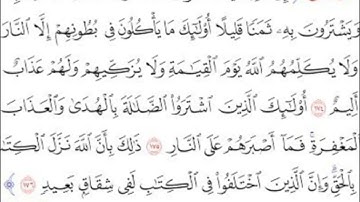 وَيَشْتَرُونَ بِهِۦ ثَمَنًا قَلِيلًا أُو۟لَٰٓئِكَ مَا يَأْكُلُونَ فِى بُطُونِهِمْ إِلَّا ٱلنَّارَ
وَلَا يُكَلِّمُهُمُ ٱللَّهُ يَوْمَ ٱلْقِيَٰمَةِ وَلَا يُزَكِّيهِمْ وَلَهُمْ عَذَابٌ
أَلِيمٌ ١٧٤ أُو۟لَٰٓئِكَ ٱلَّذِينَ ٱشْتَرَوُا۟ ٱلضَّلَٰلَةَ بِٱلْهُدَىٰ وَٱلْعَذَابَ
لْمَغْفِرَةِ فَمَآ أَصْبَرَهُمْ عَلَى ٱلنَّارِ ١٧٥ ذَٰلِكَ بِأَنَّ ٱللَّهَ نَزَّلَ ٱلْكِتَٰ
بِٱلْحَقِّ وَإِنَّ ٱلَّذِينَ ٱخْتَلَفُوا۟ فِى ٱلْكِتَٰبِ لَفِى شِقَاقٍۭ بَعِيدٍ ١٧٦